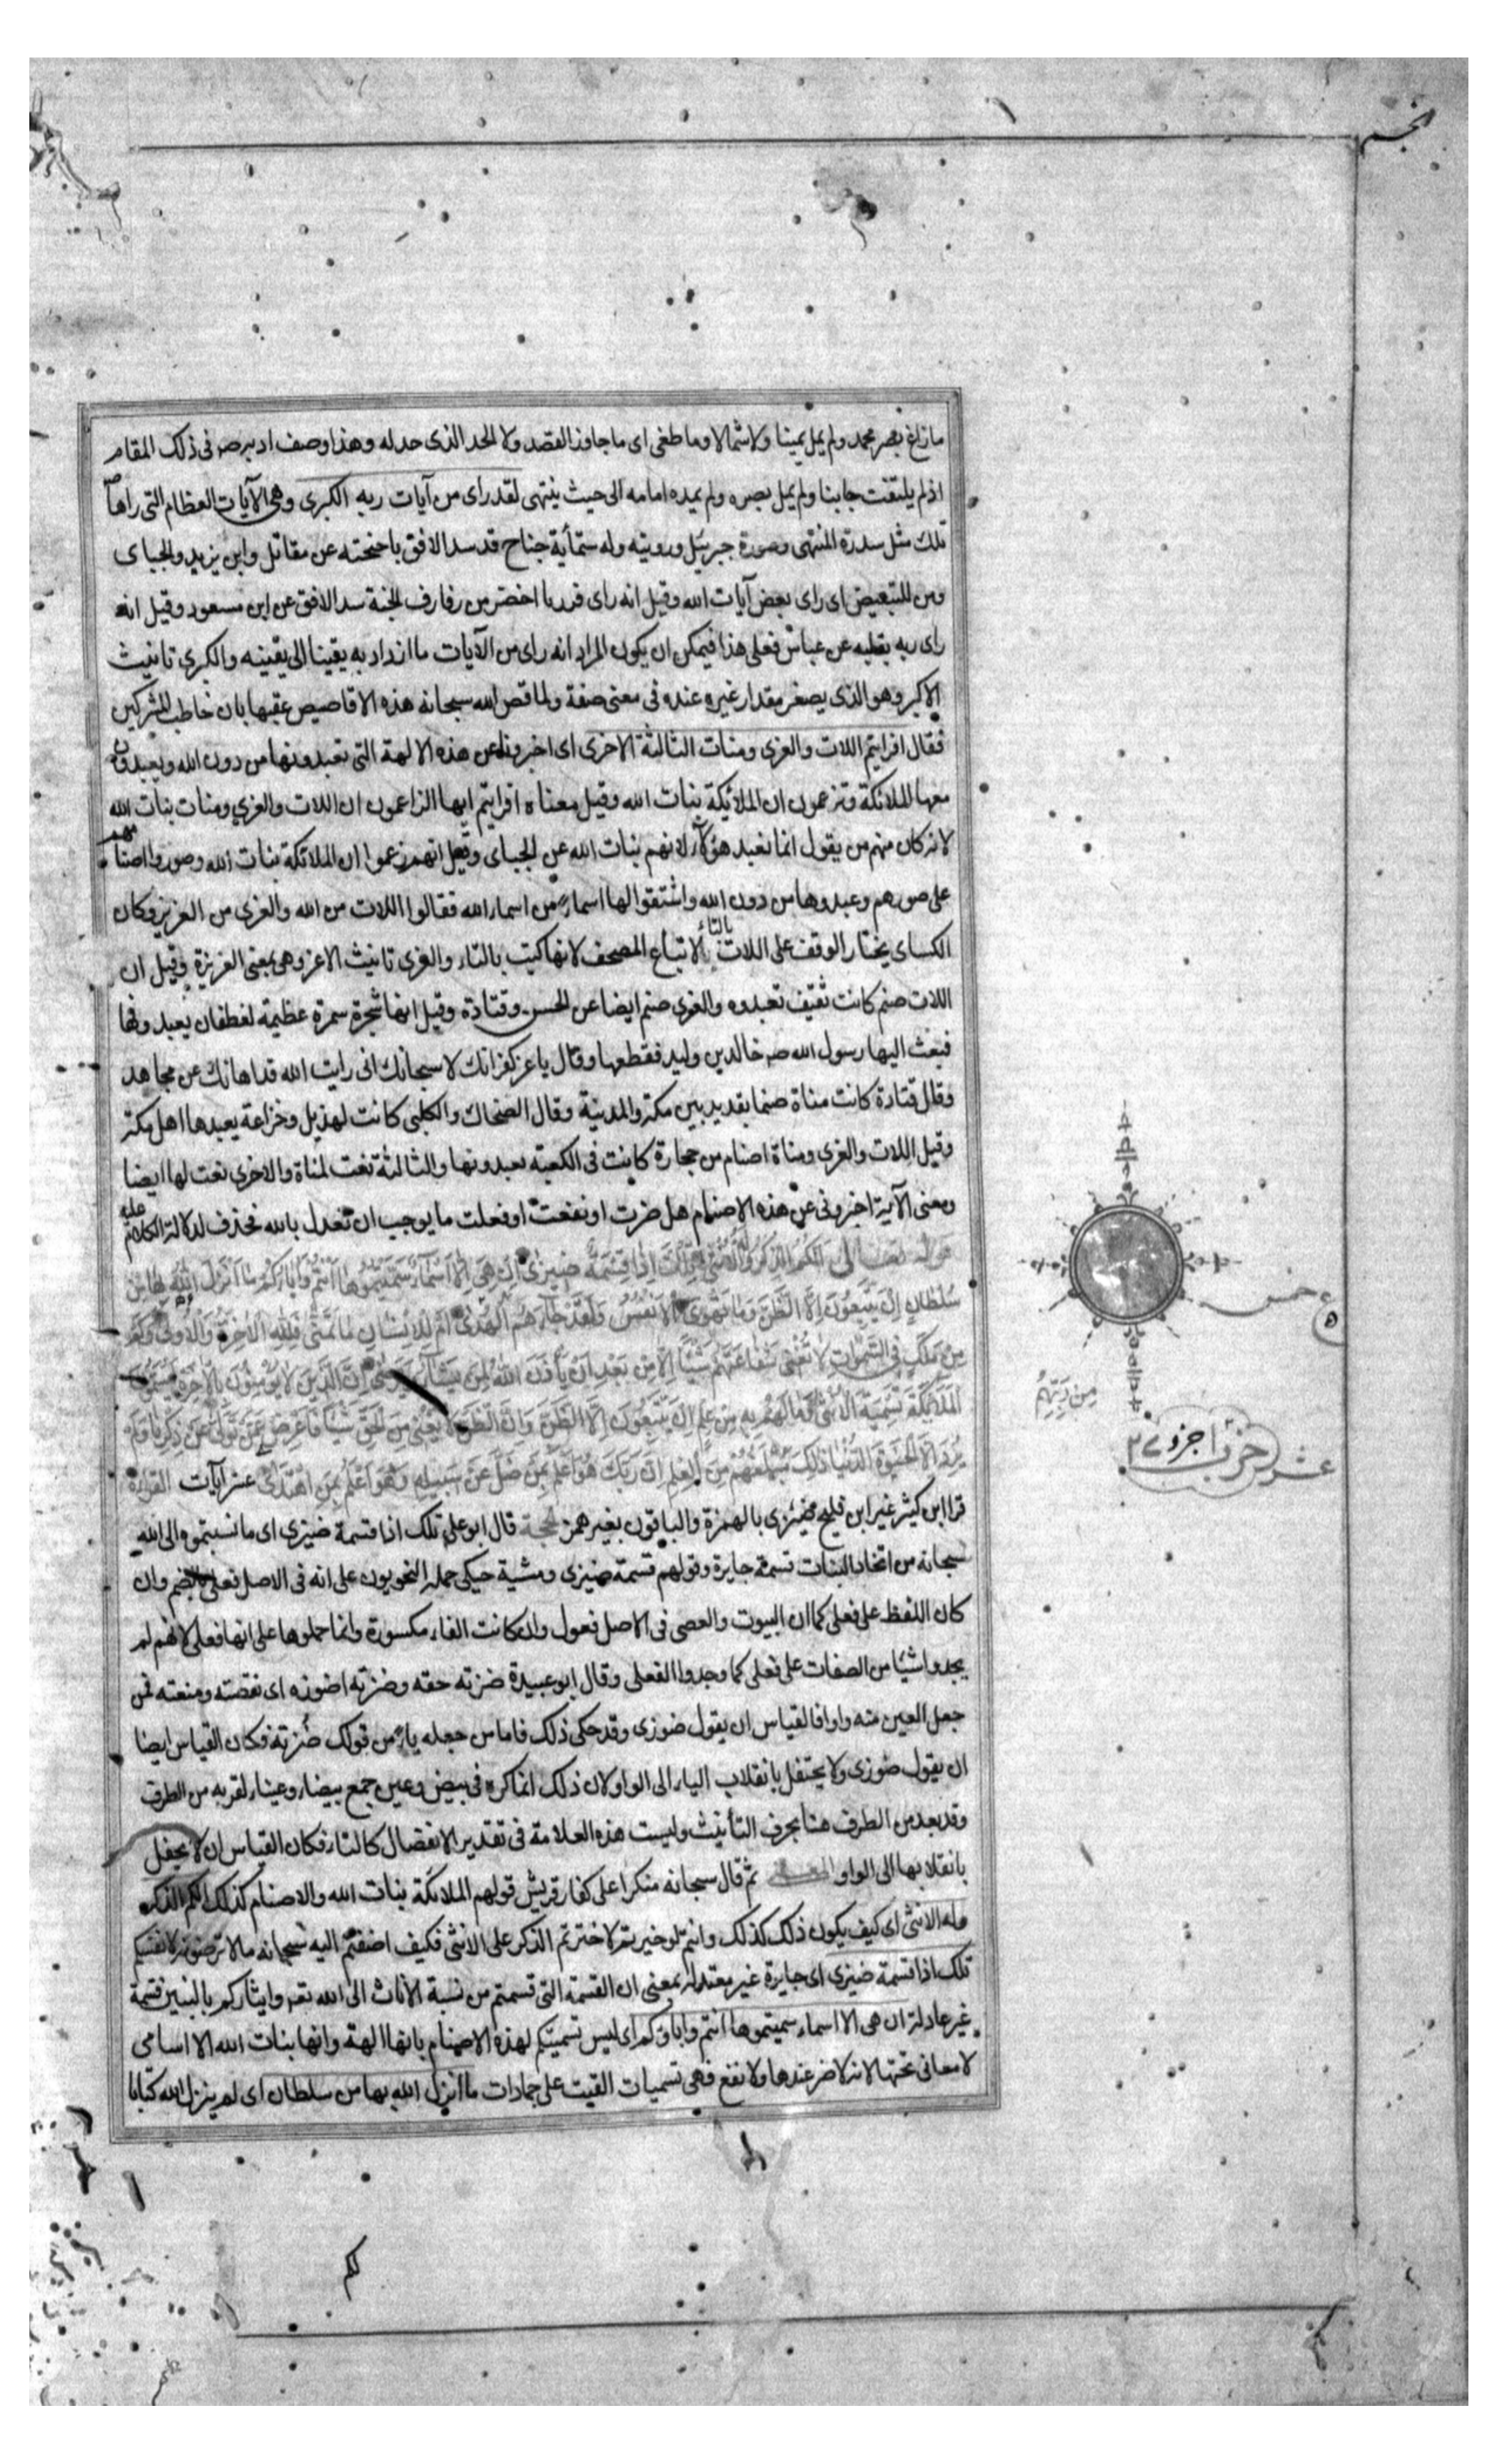 النجم
ما زاغ بصر محمد ولم يمل يمينا ولا شمالا وما طغى اى ما جاوز القصد ولا الحد الذى حد له وهذا وصف ادبه صم فى ذلك المقام
اذ لم يلتفت جانبا ولم يمل بصره ولم يمده امامه الى حيث ينتهى لقد راى من آيات ربه الكبرى وهى الآيات العظام التى راها
تلك مثل سدرة المنتهى وصورة جبرئيل ورويته وله ستمأية جناح قد سد الافق باجنحته عن مقاتل وابن يزيد والجباى
ومن للتبعيض اى راى بعض آيات الله وقيل انه راى فرفا اخضر من رفارف الجنة سد الافق عن ابن مسعود وقيل انه
راى ربه بقلبه عن عباس فعلى هذا فيمكن ان يكون المراد انه راى من الآيات ما ازداد به يقينا الى يقينه والكبرى تانيث
الاكبر وهو الذى يصغر مقدار غيره عنده فى معنى صفة ولما قص الله سبحانه هذه الاقاصيص عقبها بان خاطب المشركين
فقال افرايتم اللات والعزى ومنات الثالثة الاخرى اى اخبرونا عن هذه الالهة التى تعبدونها من دون الله وتعبدون
معها الملائكة وتزعمون ان الملائكة بنات الله وقيل معناه افرايتم ايها الزاعمون ان اللات والعزى ومنات بنات الله
لانه كان منهم من يقول انما نعبد هؤلاء لانهم بنات الله عن الجباى وقيل انهم زعموا ان الملائكة بنات الله وصوروا اصنامهم
على صورهم وعبدوها من دون الله واشتقوا لها اسماء من اسماء الله فقالوا اللات من الله والعزى من العزيز وكان
الكساى يختار الوقف على اللات بالتاء لاتباع المصحف لانها كتبت بالتاء والعزى تانيث الاعز وهى بمعنى العزيزة وقيل ان
اللات صنم كانت ثقيف تعبده والعزى صنم ايضا عن الحسن وقتادة وقيل انها شجرة سمرة عظيمة لغطفان يعبدونها
فبعث اليها رسول الله صم خالد بن وليد فقطعها وقال يا عز كفرانك لا سبحانك انى رايت الله قد اهانك عن مجاهد
وقال قتادة كانت مناة صنما بقديد بين مكة والمدينة وقال الضحاك والكلبى كانت لهذيل وخزاعة يعبدها اهل مكة
وقيل اللات والعزى ومناة اصنام من حجارة كانت فى الكعبة يعبدونها والثالثة نعت لمناة والاخرى نعت لها ايضا
ومعنى الآية اخبرونى عن هذه الاصنام هل ضرت او نفعت او فعلت ما يوجب ان تعدل بالله فحذف لدلالة الكلام عليه
قوله تعالى الكم الذكر وله الانثى تلك اذا قسمة ضيزى ان هى الا اسماء سميتموها انتم واباؤكم ما انزل الله بها من
سلطان ان يتبعون الا الظن وما تهوى الانفس ولقد جاءهم من ربهم الهدى ام للانسان ما تمنى فلله الاخرة والاولى وكم
من ملك فى السموات لا تغنى شفاعتهم شيئا الا من بعد ان يأذن الله لمن يشاء ويرضى ان الذين لا يؤمنون بالاخرة ليسمون
الملائكة تسمية الانثى وما لهم به من علم ان يتبعون الا الظن وان الظن لا يغنى من الحق شيئا فاعرض عن من تولى عن ذكرنا ولم
يرد الا الحيوة الدنيا ذلك مبلغهم من العلم ان ربك هو اعلم بمن ضل عن سبيله وهو اعلم بمن اهتدى عشر آيات القراءة
قرا ابن كثير غير ابن فليح ضئزى بالهمزة والباقون بغير همز الحجة قال ابو على تلك اذا قسمة ضيزى اى ما نسبتموه الى الله
سبحانه من اتخاذ البنات قسمة جايرة وقولهم قسمة ضيزى ومشية حيكى حمله النحويون على انه فى الاصل فعلى بالضم وان
كان اللفظ على فعلى كما ان البيوت والعصى فى الاصل فعول وان كانت الفاء مكسورة وانما حملوها على انها فعلى لانهم لم
يجدوا شيئا من الصفات على فعلى كما وجدوا الفعلى وقال ابو عبيدة ضزته حقه وضزته اضوزه اى نقصته ومنعته فمن
جعل العين منه واوا فالقياس ان يقول ضوزى وقد حكى ذلك فاما من جعله ياء من قولك ضزته فكان القياس ايضا
ان يقول ضوزى ولا يحتفل بانقلاب الياء الى الواو لان ذلك انما كره فى بيض وعين جمع بيضاء وعيناء لقربه من الطرف
وقد بعد من الطرف هنا بحرف التأنيث وليست هذه العلامة فى تقدير الانفصال كالتاء فكان القياس ان لا يحفل
بانقلابها الى الواو المعنى ثم قال سبحانه منكرا على كفار قريش قولهم الملائكة بنات الله والاصنام كذلك الكم الذكر
وله الانثى اى كيف يكون ذلك كذلك وانتم لو خيرتم لاخترتم الذكر على الانثى فكيف اضفتم اليه سبحانه ما لا ترضونه لانفسكم
تلك اذا قسمة ضيزى اى جايرة غير معتدلة بمعنى ان القسمة التى قسمتم من نسبة الاناث الى الله تعه وايثاركم بالبنين قسمة
غير عادلة ان هى الا اسماء سميتموها انتم واباؤكم اى ليس تسميتكم لهذه الاصنام بانها الهة وانها بنات الله الا اسامى
لا معانى تحتها لانه لا ضر عندها ولا نفع فهى تسميات القيت على جمادات ما انزل الله بها من سلطان اى لم ينزل الله كتابا
خمس
من ربهم
عشر
حزب
جزو ٢٧
لكم